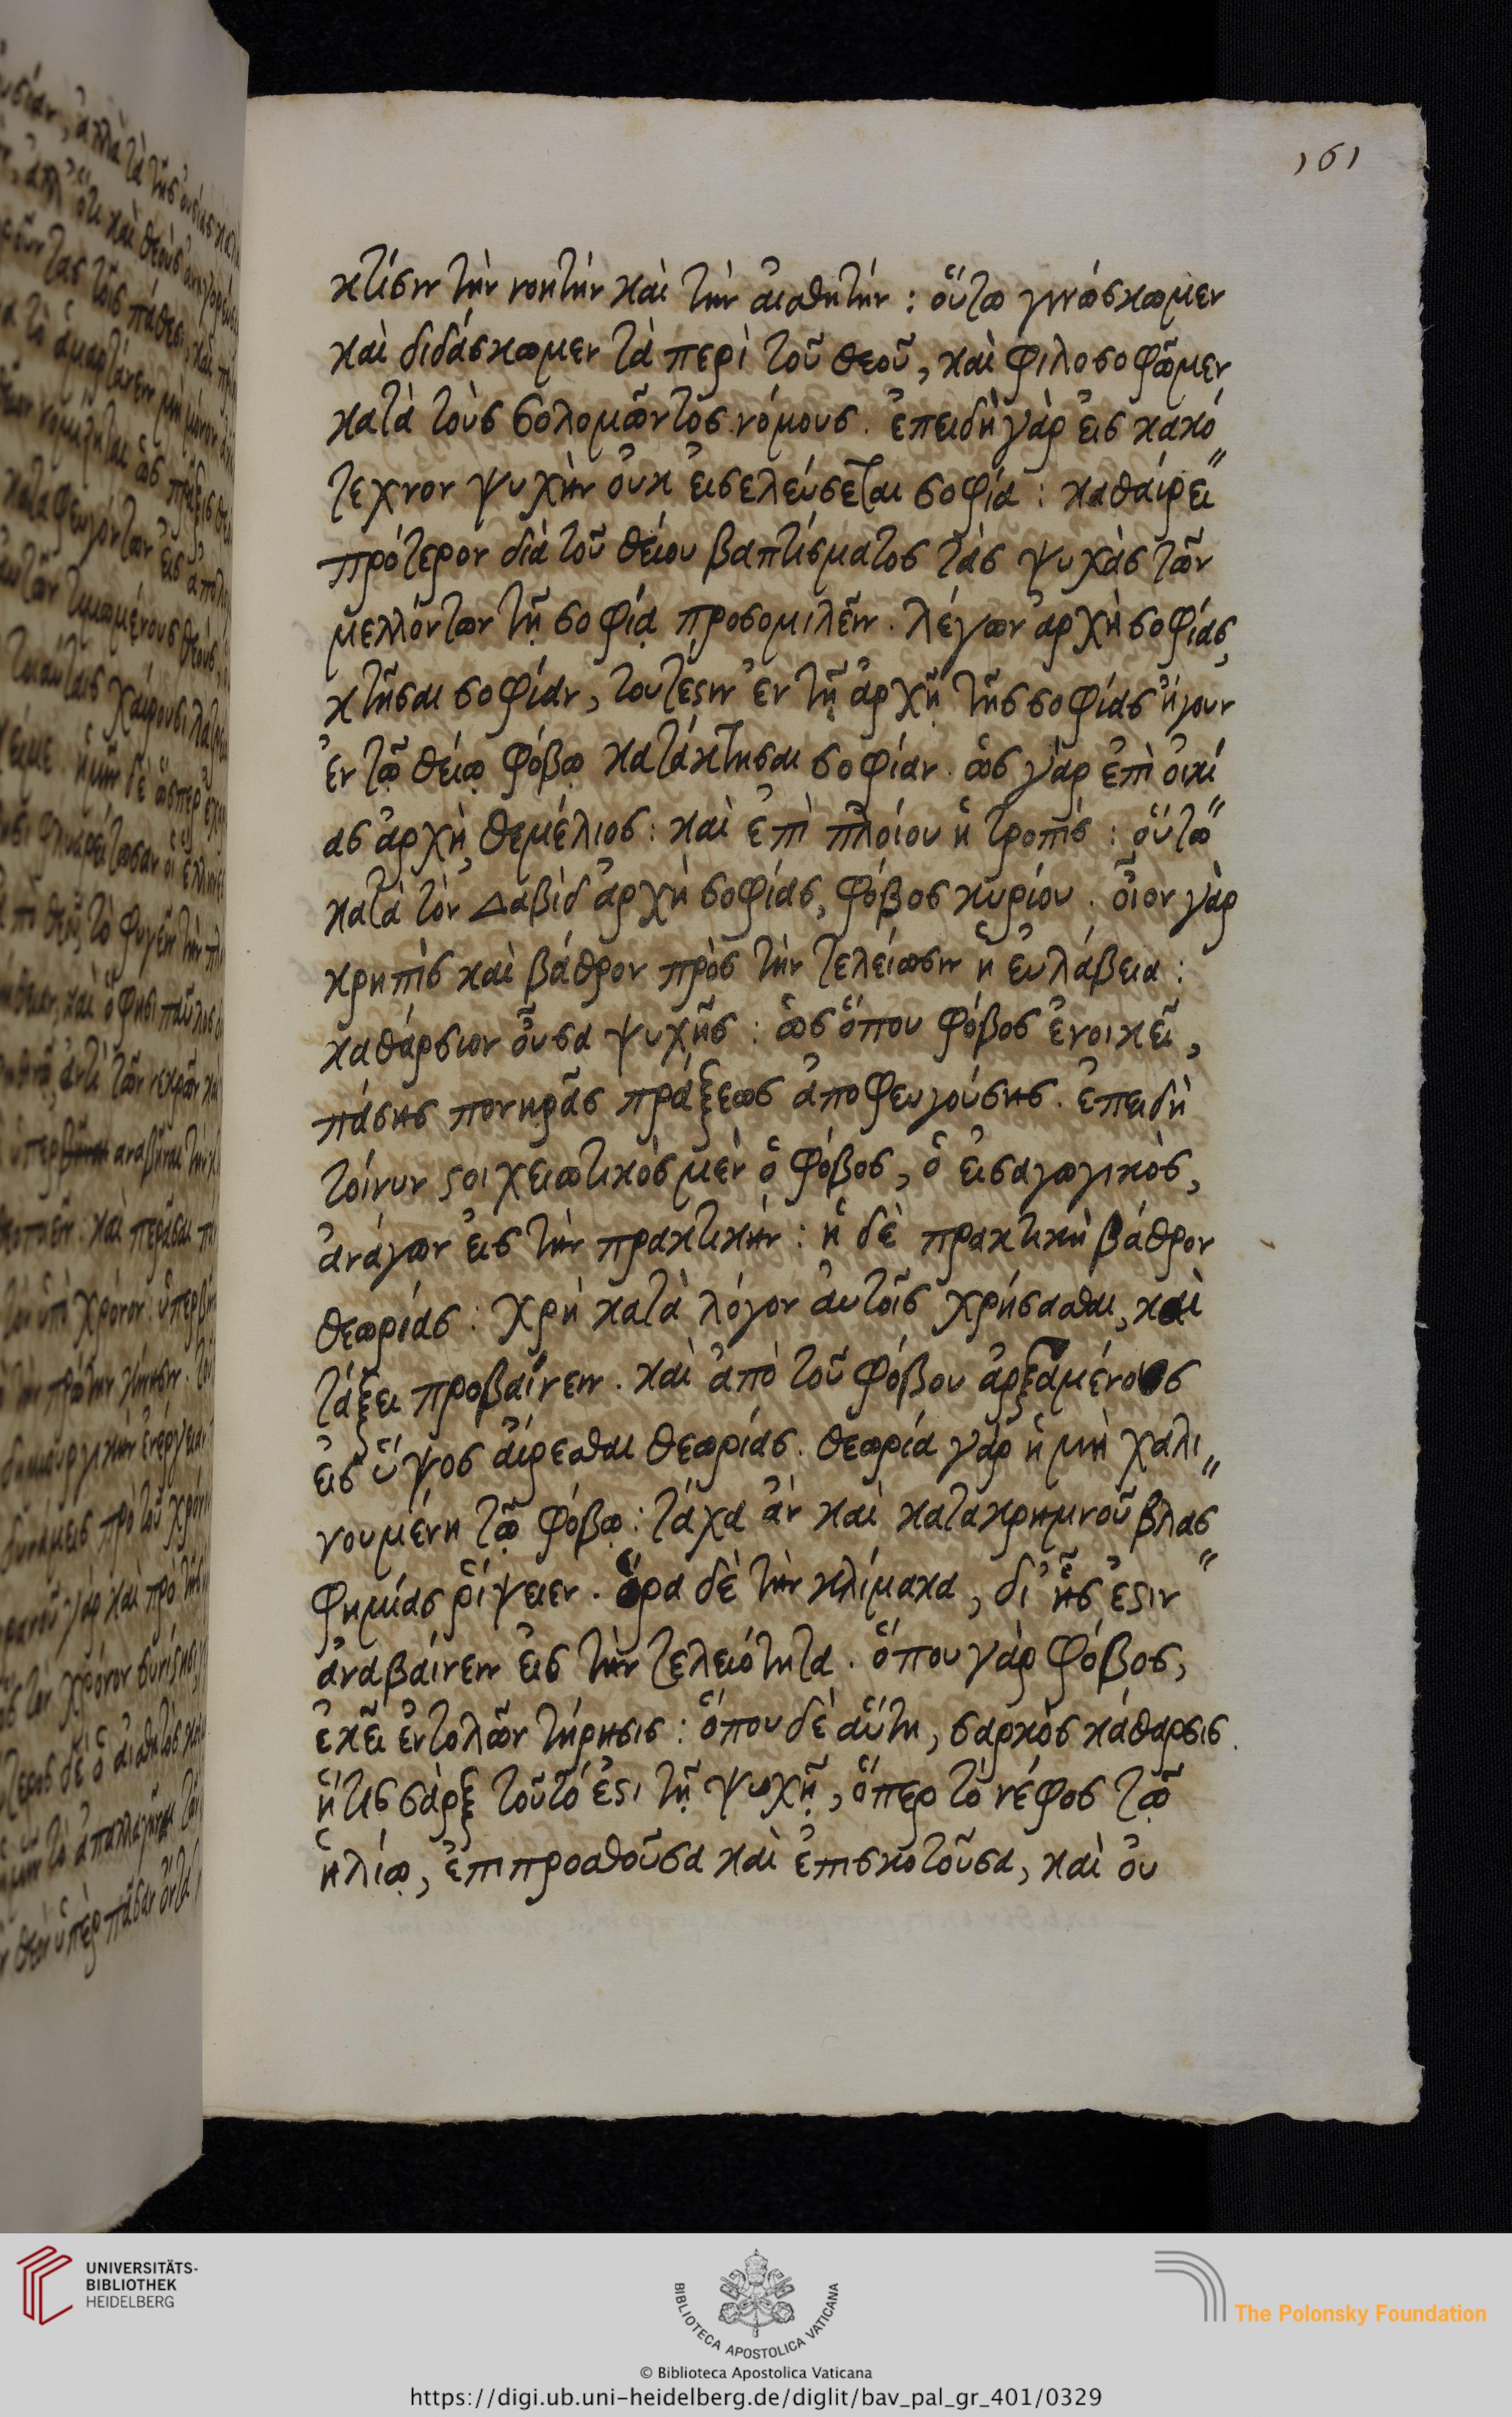 161
κτίσιν τὴν νοητὴν καὶ τὴν αἰσθητήν : οὕτω γινώσκωμεν
καὶ διδάσκωμεν τὰ περὶ τοῦ θεοῦ, καὶ φιλοσοφῶμεν
κατὰ τοὺς σολομῶντος νόμους. ἐπειδὴ γὰρ εἰς κακό
τεχνον ψυχὴν οὐκ εἰσελεύσεται σοφία : καθαίρει
πρότερον διὰ τοῦ θείου βαπτίσματος τὰς ψυχὰς τῶν
μελλόντων τῇ σοφίᾳ προσομιλεῖν. λέγων ἀρχὴ σοφίας,
κτῆσαι σοφίαν, τουτέστιν ἐν τῇ ἀρχῇ τῆς σοφίας ἤγουν
ἐν τῷ θείῳ φόβῳ κατάκτησαι σοφίαν. ὡς γὰρ ἐπὶ οἰκί
ας ἀρχὴ, θεμέλιος : καὶ ἐπὶ πλοίου ἡ τροπὶς : οὕτω
κατὰ τὸν Δαβὶδ ἀρχὴ σοφίας, φόβος κυρίου. οἷον γὰρ
κρηπὶς καὶ βάθρον πρὸς τὴν τελείωσιν ἡ εὐλάβεια :
καθάρσιον οὖσα ψυχῆς : ὡς ὅπου φόβος ἐνοικεῖ,
πάσης πονηρᾶς πράξεως ἀποφευγούσης. ἐπειδὴ
τοίνυν στοιχειωτικὸς μὲν ὁ φόβος, ὁ εἰσαγωγικὸς,
ἀνάγων εἰς τὴν πρακτικήν : ἡ δὲ πρακτικὴ βάθρον
θεωρίας : χρὴ κατὰ λόγον αὐτοῖς χρήσασθαι, καὶ
τάξει προβαίνειν. καὶ ἀπὸ τοῦ φόβου ἀρξαμένους
εἰς ὕψος αἴρεσθαι θεωρίας. θεωρία γὰρ ἡ μὴ χαλι
νουμένη τῷ φόβῳ : τάχα ἂν καὶ κατακρημνοῦ βλασ
φημίας ῥίψειεν. ὅρα δὲ τὴν κλίμακα, δι' ἧς ἐστιν
ἀναβαίνειν εἰς τὴν τελειότητα. ὅπου γὰρ φόβος,
ἐκεῖ ἐντολῶν τήρησις : ὅπου δὲ αὕτη, σαρκὸς κάθαρσις.
ἥτις σὰρξ τοῦτό ἐστι τῇ ψυχῇ, ὅπερ τὸ νέφος τῷ
ἡλίῳ, ἐπιπροσθοῦσα καὶ ἐπισκοτοῦσα, καὶ οὐ
UNIVERSITÄTS-
BIBLIOTHEK
HEIDELBERG
BIBLIOTECA APOSTOLICA VATICANA
The Polonsky Foundation
© Biblioteca Apostolica Vaticana
https://digi.ub.uni-heidelberg.de/diglit/bav_pal_gr_401/0329